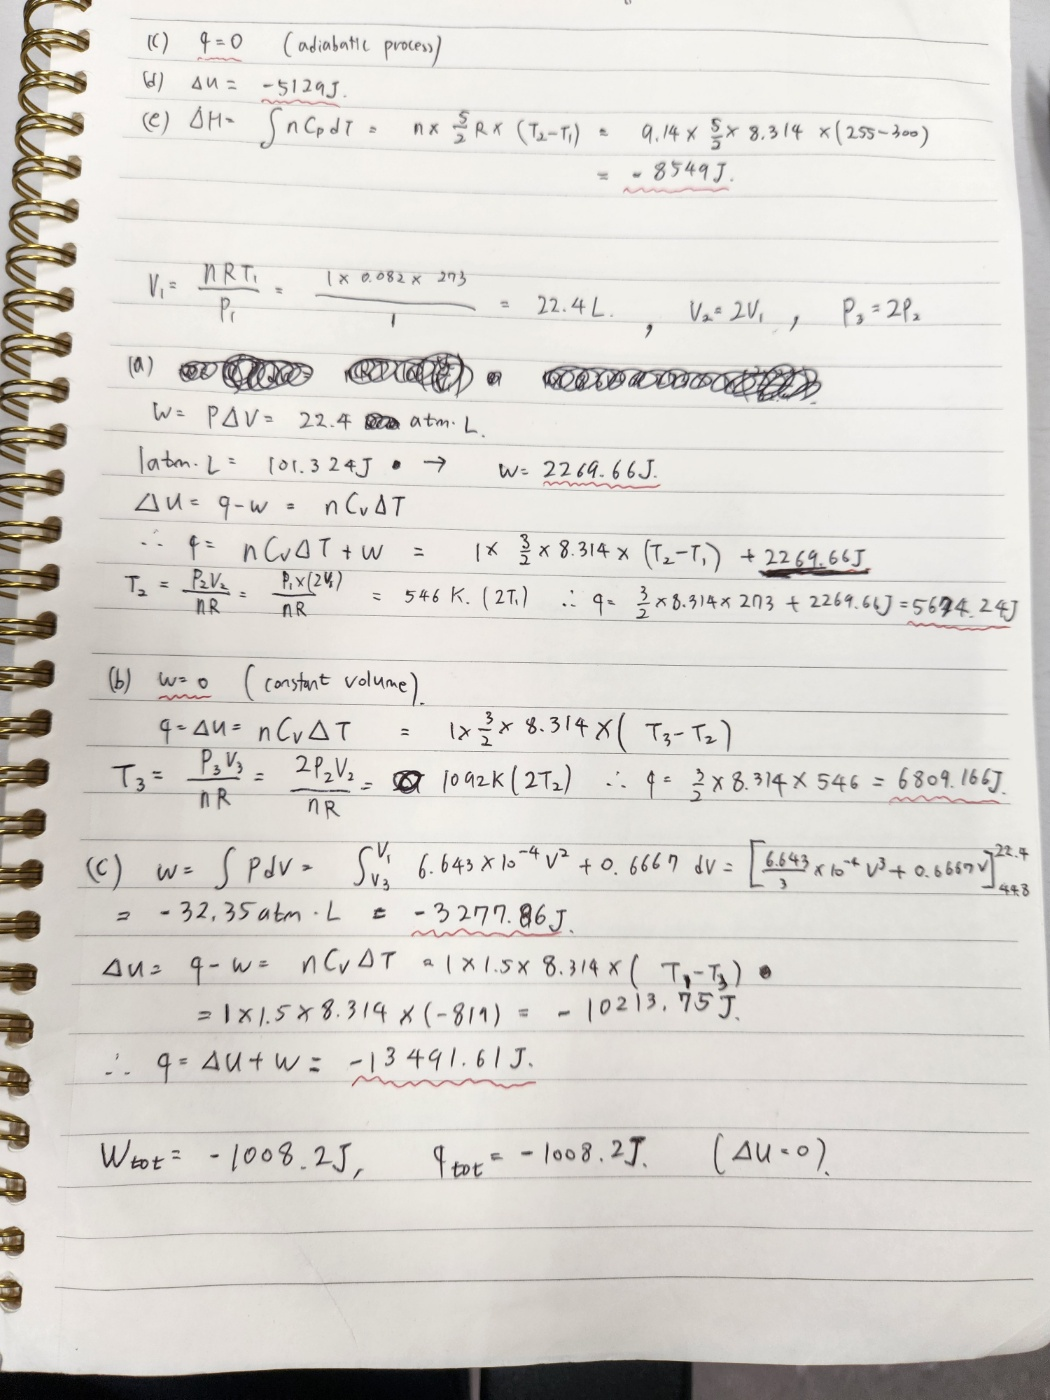 (c) q = 0 (adiabatic process)
(d) ΔU = -5129J.
(e) ΔH = ∫nCpdT = n × 5/2 R × (T₂-T₁) = 9.14 × 5/2 × 8.314 × (255-300)
= -8549J.
V₁ = nRT₁/P₁ = 1 × 0.082 × 273/1 = 22.4L. , V₂ = 2V₁ , P₃ = 2P₂
(a)
W = PΔV = 22.4 atm·L.
1atm·L = 101.324J → W = 2269.66J.
ΔU = q-w = nCvΔT
∴ q = nCvΔT + W = 1 × 3/2 × 8.314 × (T₂-T₁) + 2269.66J
T₂ = P₂V₂/nR = P₁×(2V₁)/nR = 546 K. (2T₁) ∴ q = 3/2 × 8.314 × 273 + 2269.66J = 5674.24J
(b) W = 0 (constant volume).
q = ΔU = nCvΔT = 1 × 3/2 × 8.314 × (T₃-T₂)
T₃ = P₃V₃/nR = 2P₂V₂/nR = 1092K (2T₂) ∴ q = 3/2 × 8.314 × 546 = 6809.166J.
(c) W = ∫PdV = ∫_V₃^V₁ 6.643×10⁻⁴V² + 0.6667 dV = [6.643/3 × 10⁻⁴ V³ + 0.6667V]^22.4_44.8
= -32.35atm·L = -3277.86J.
ΔU = q-w = nCvΔT = 1 × 1.5 × 8.314 × (T₁-T₃)
= 1 × 1.5 × 8.314 × (-819) = -10213.75J.
∴ q = ΔU + W = -13491.61J.
Wtot = -1008.2J, qtot = -1008.2J. (ΔU = 0).